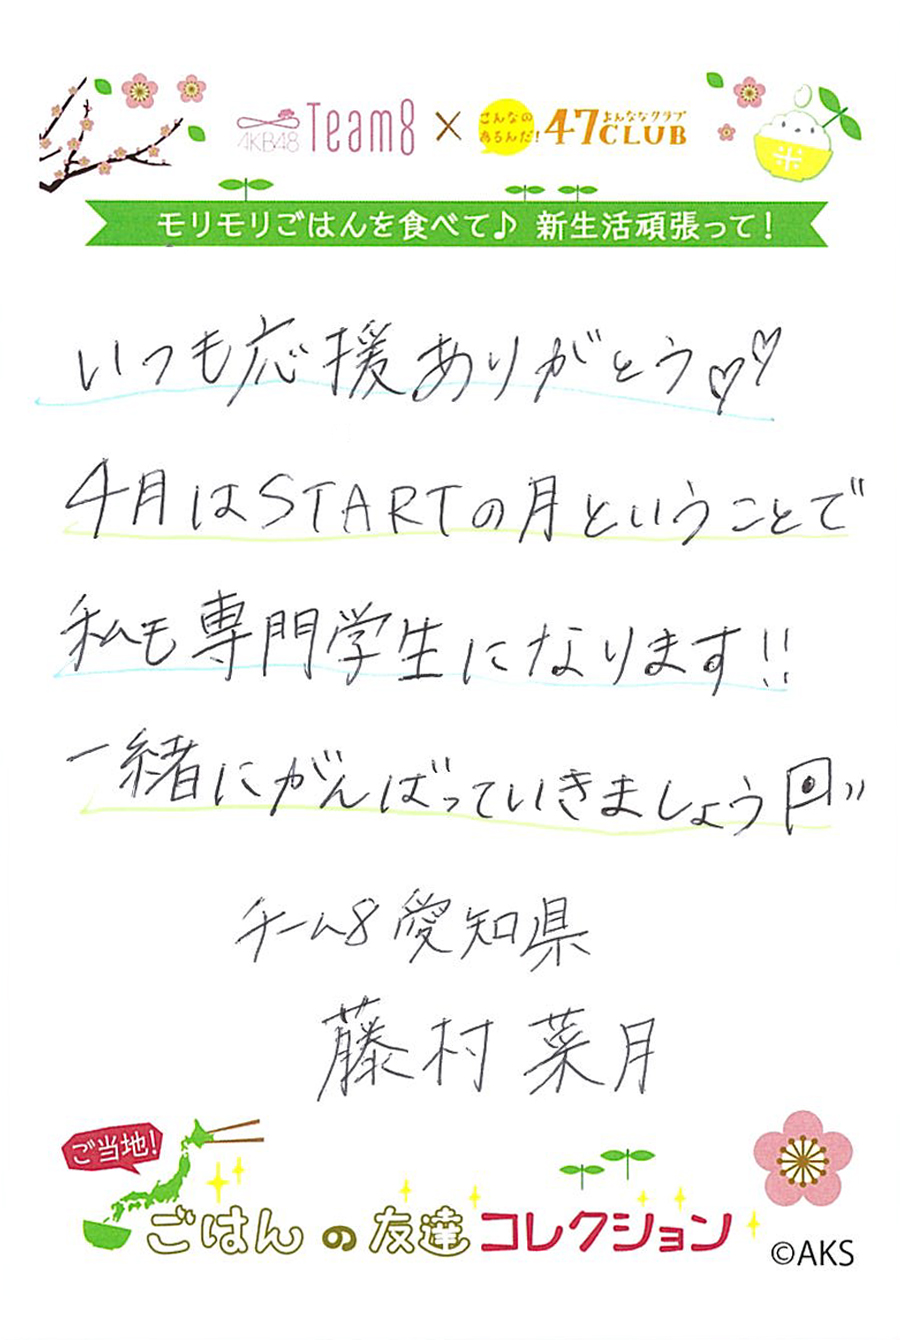 AKB48 Team8 × こんなの あるんだ! 47CLUB よんななクラブ
米
モリモリごはんを食べて♪ 新生活頑張って!
いつも応援ありがとう♡♡
4月はSTARTの月ということで
私も専門学生になります!!
一緒にがんばっていきましょう
チーム8 愛知県
藤村菜月
ご当地!
ごはんの友達コレクション
©AKS